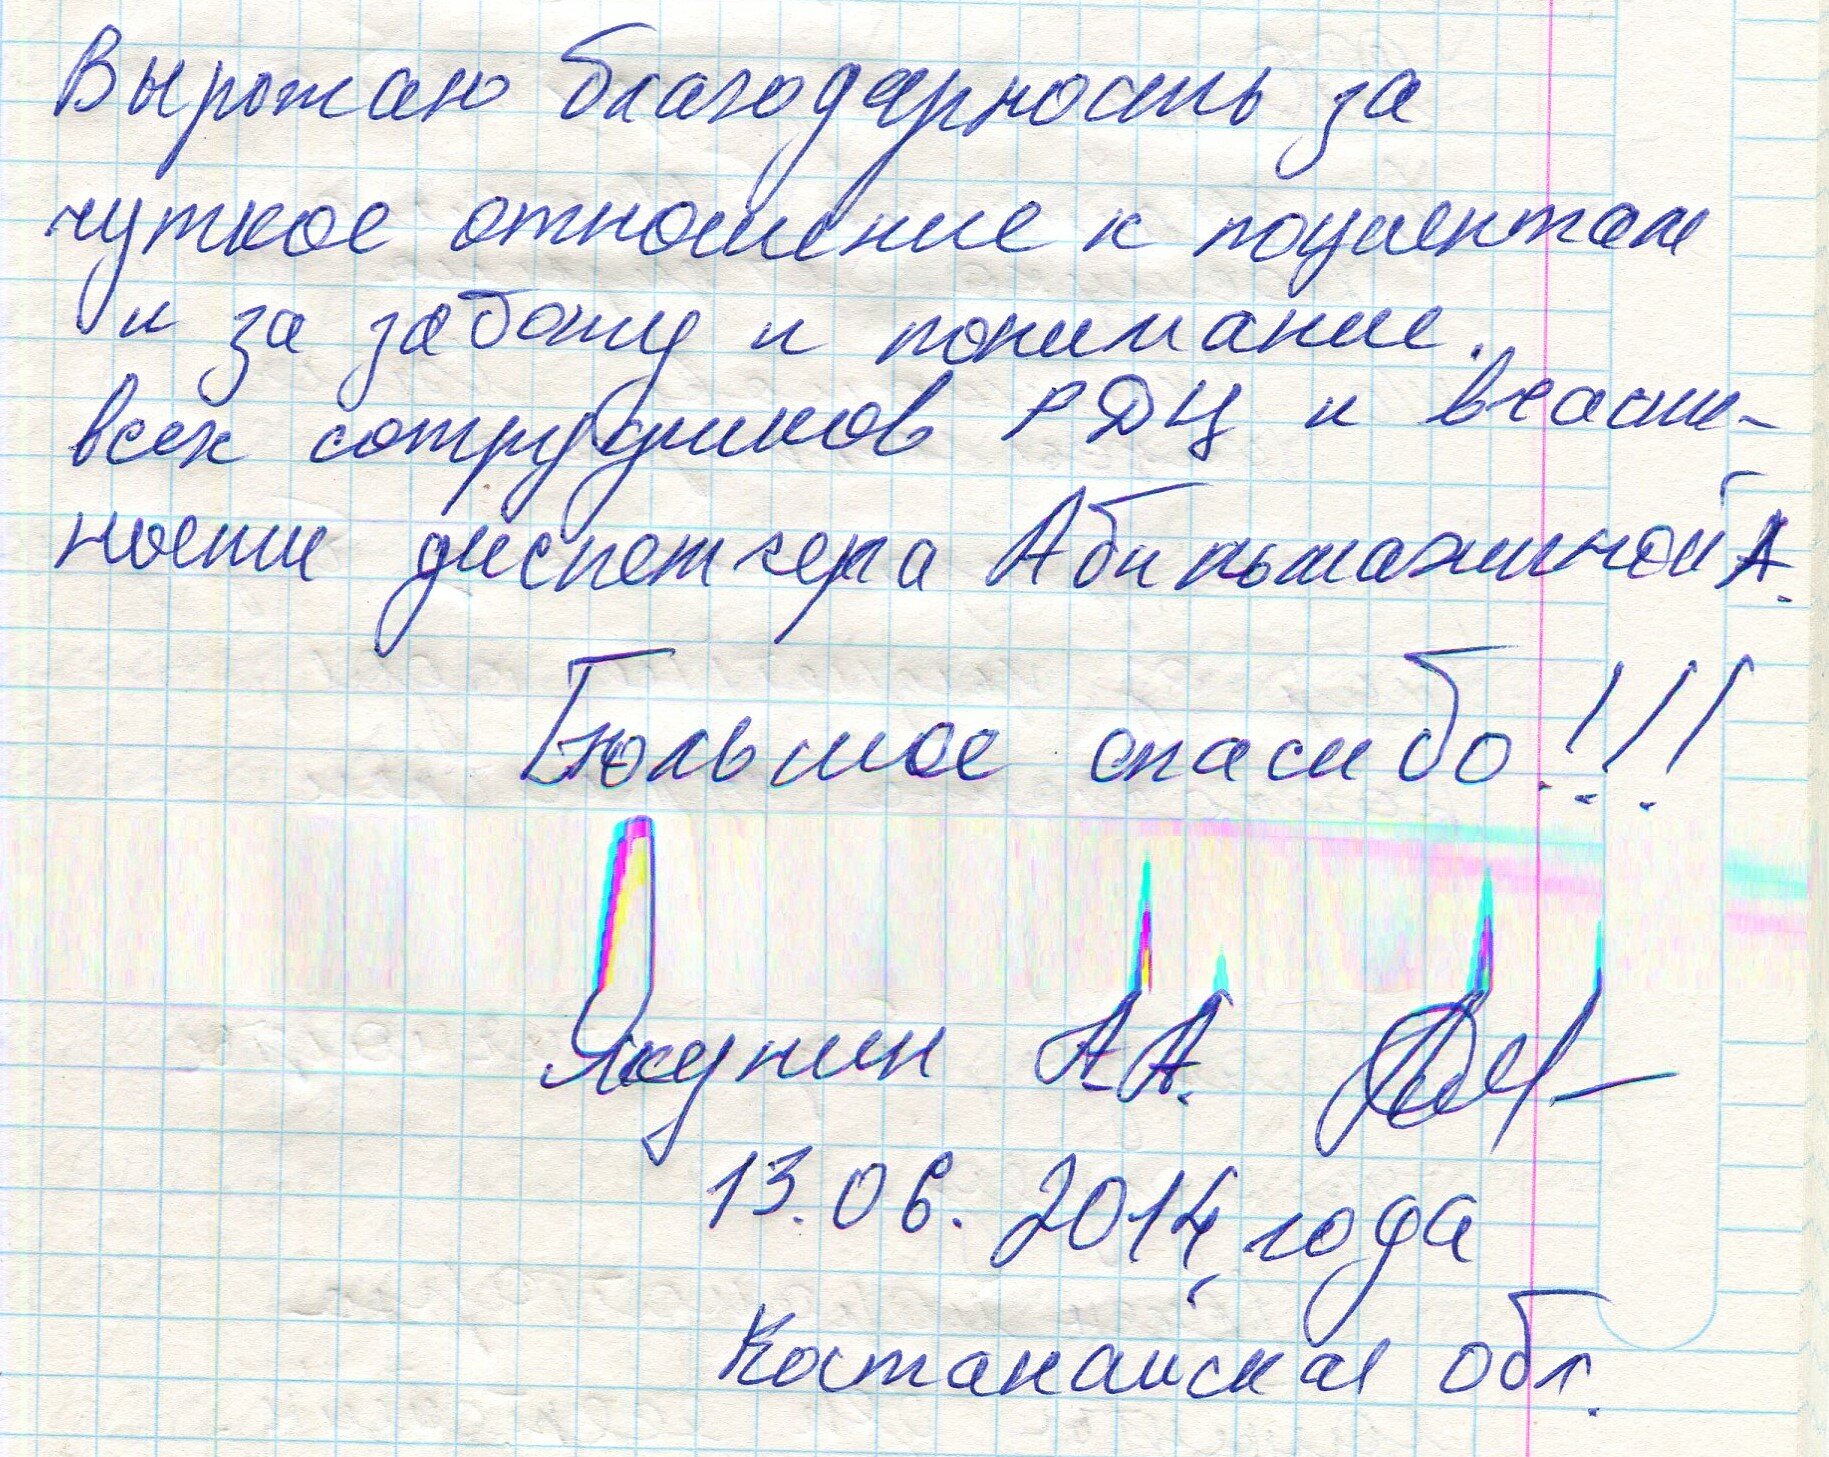 Выражаю благодарность за
чуткое отношение к пациентам
и за заботу и понимание.
всех сотрудников РДЦ и вчасти-
ности диспетчера Абильмажиной А.
Большое спасибо!!!
Якунин А.А.
13.06.2014 года
Костанайская обл.